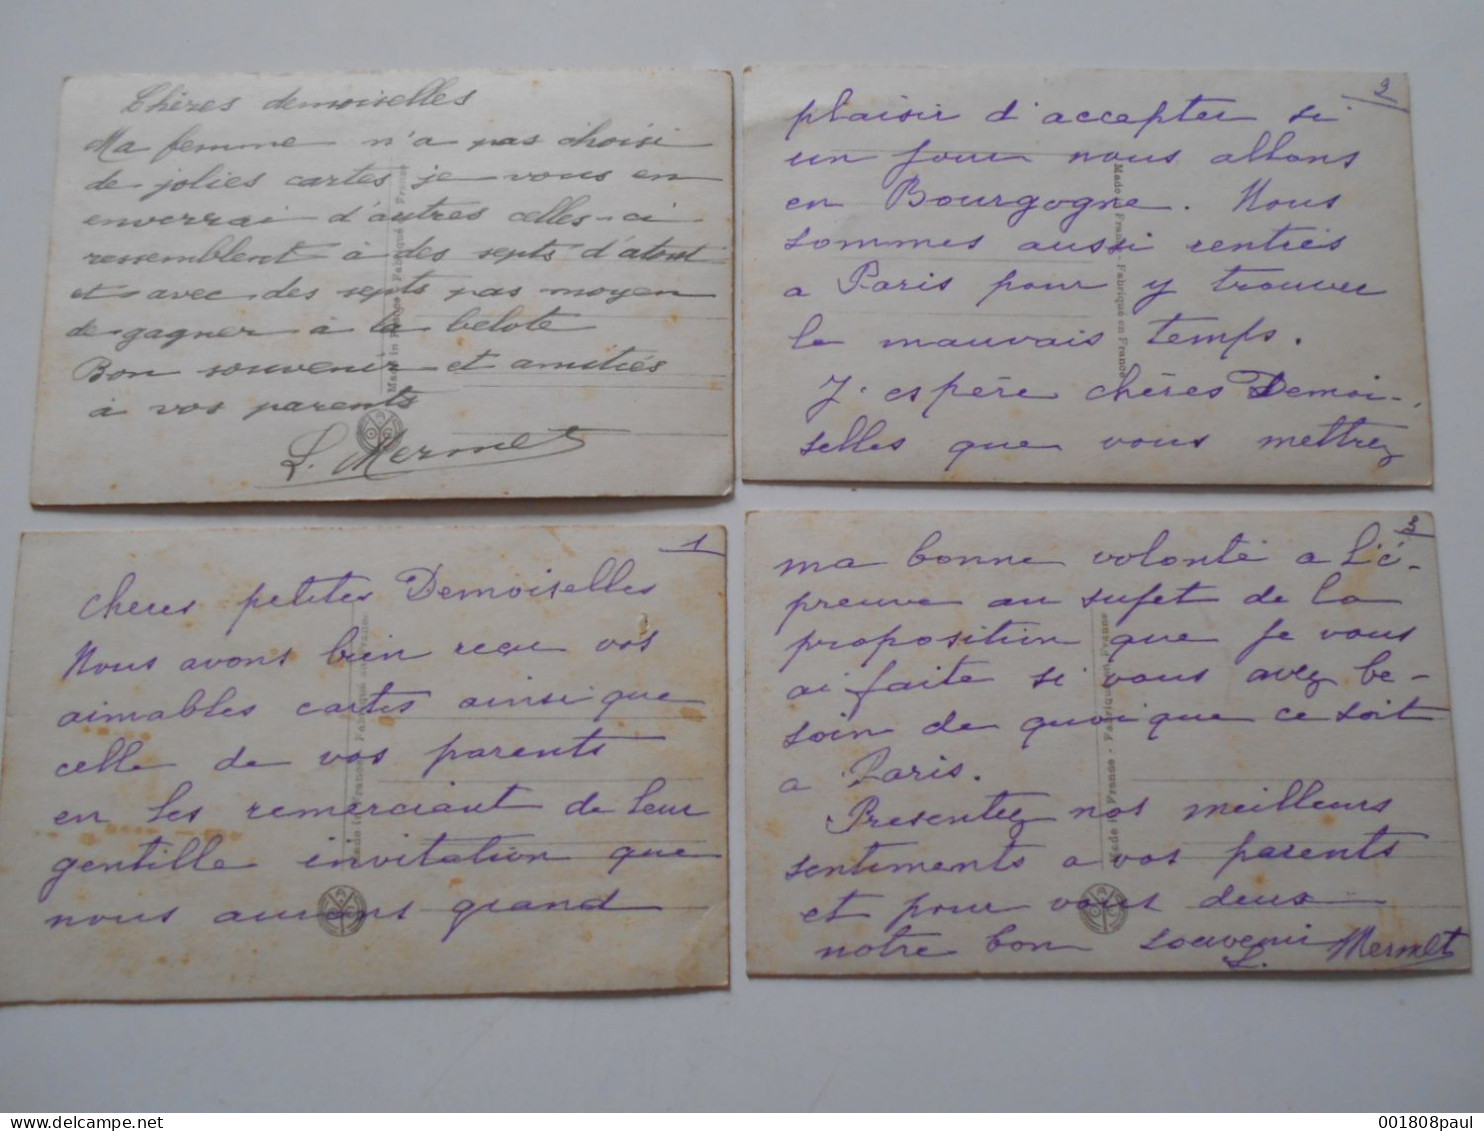 Chères demoiselles
Ma femme n'a pas choisi
de jolies cartes je vous en
enverrai d'autres celles-ci
ressemblent à des septs d'atout
et avec des septs pas moyen
de gagner à la belote
Bon souvenir et amitiés
à vos parents
L. Mermet
Made in France - Fabriqué en France
2
plaisir d'accepter si
un jour nous allons
en Bourgogne. Nous
sommes aussi rentrés
a Paris pour y trouver
le mauvais temps.
J'espère chères Demoi-
selles que vous mettrez
Made in France - Fabriqué en France
1
cheres petites Demoiselles
Nous avons bien reçu vos
aimables cartes ainsi que
celle de vos parents
en les remerciant de leur
gentille invitation que
nous aurions grand
Made in France - Fabriqué en France
3
ma bonne volonté a l'é-
preuve au sujet de la
proposition que je vous
ai faite si vous avez be-
soin de quoi que ce soit
a Paris.
Presentez nos meilleurs
sentiments a vos parents
et pour vous deux
notre bon souvenir
L. Mermet
Made in France - Fabriqué en France
001808paul